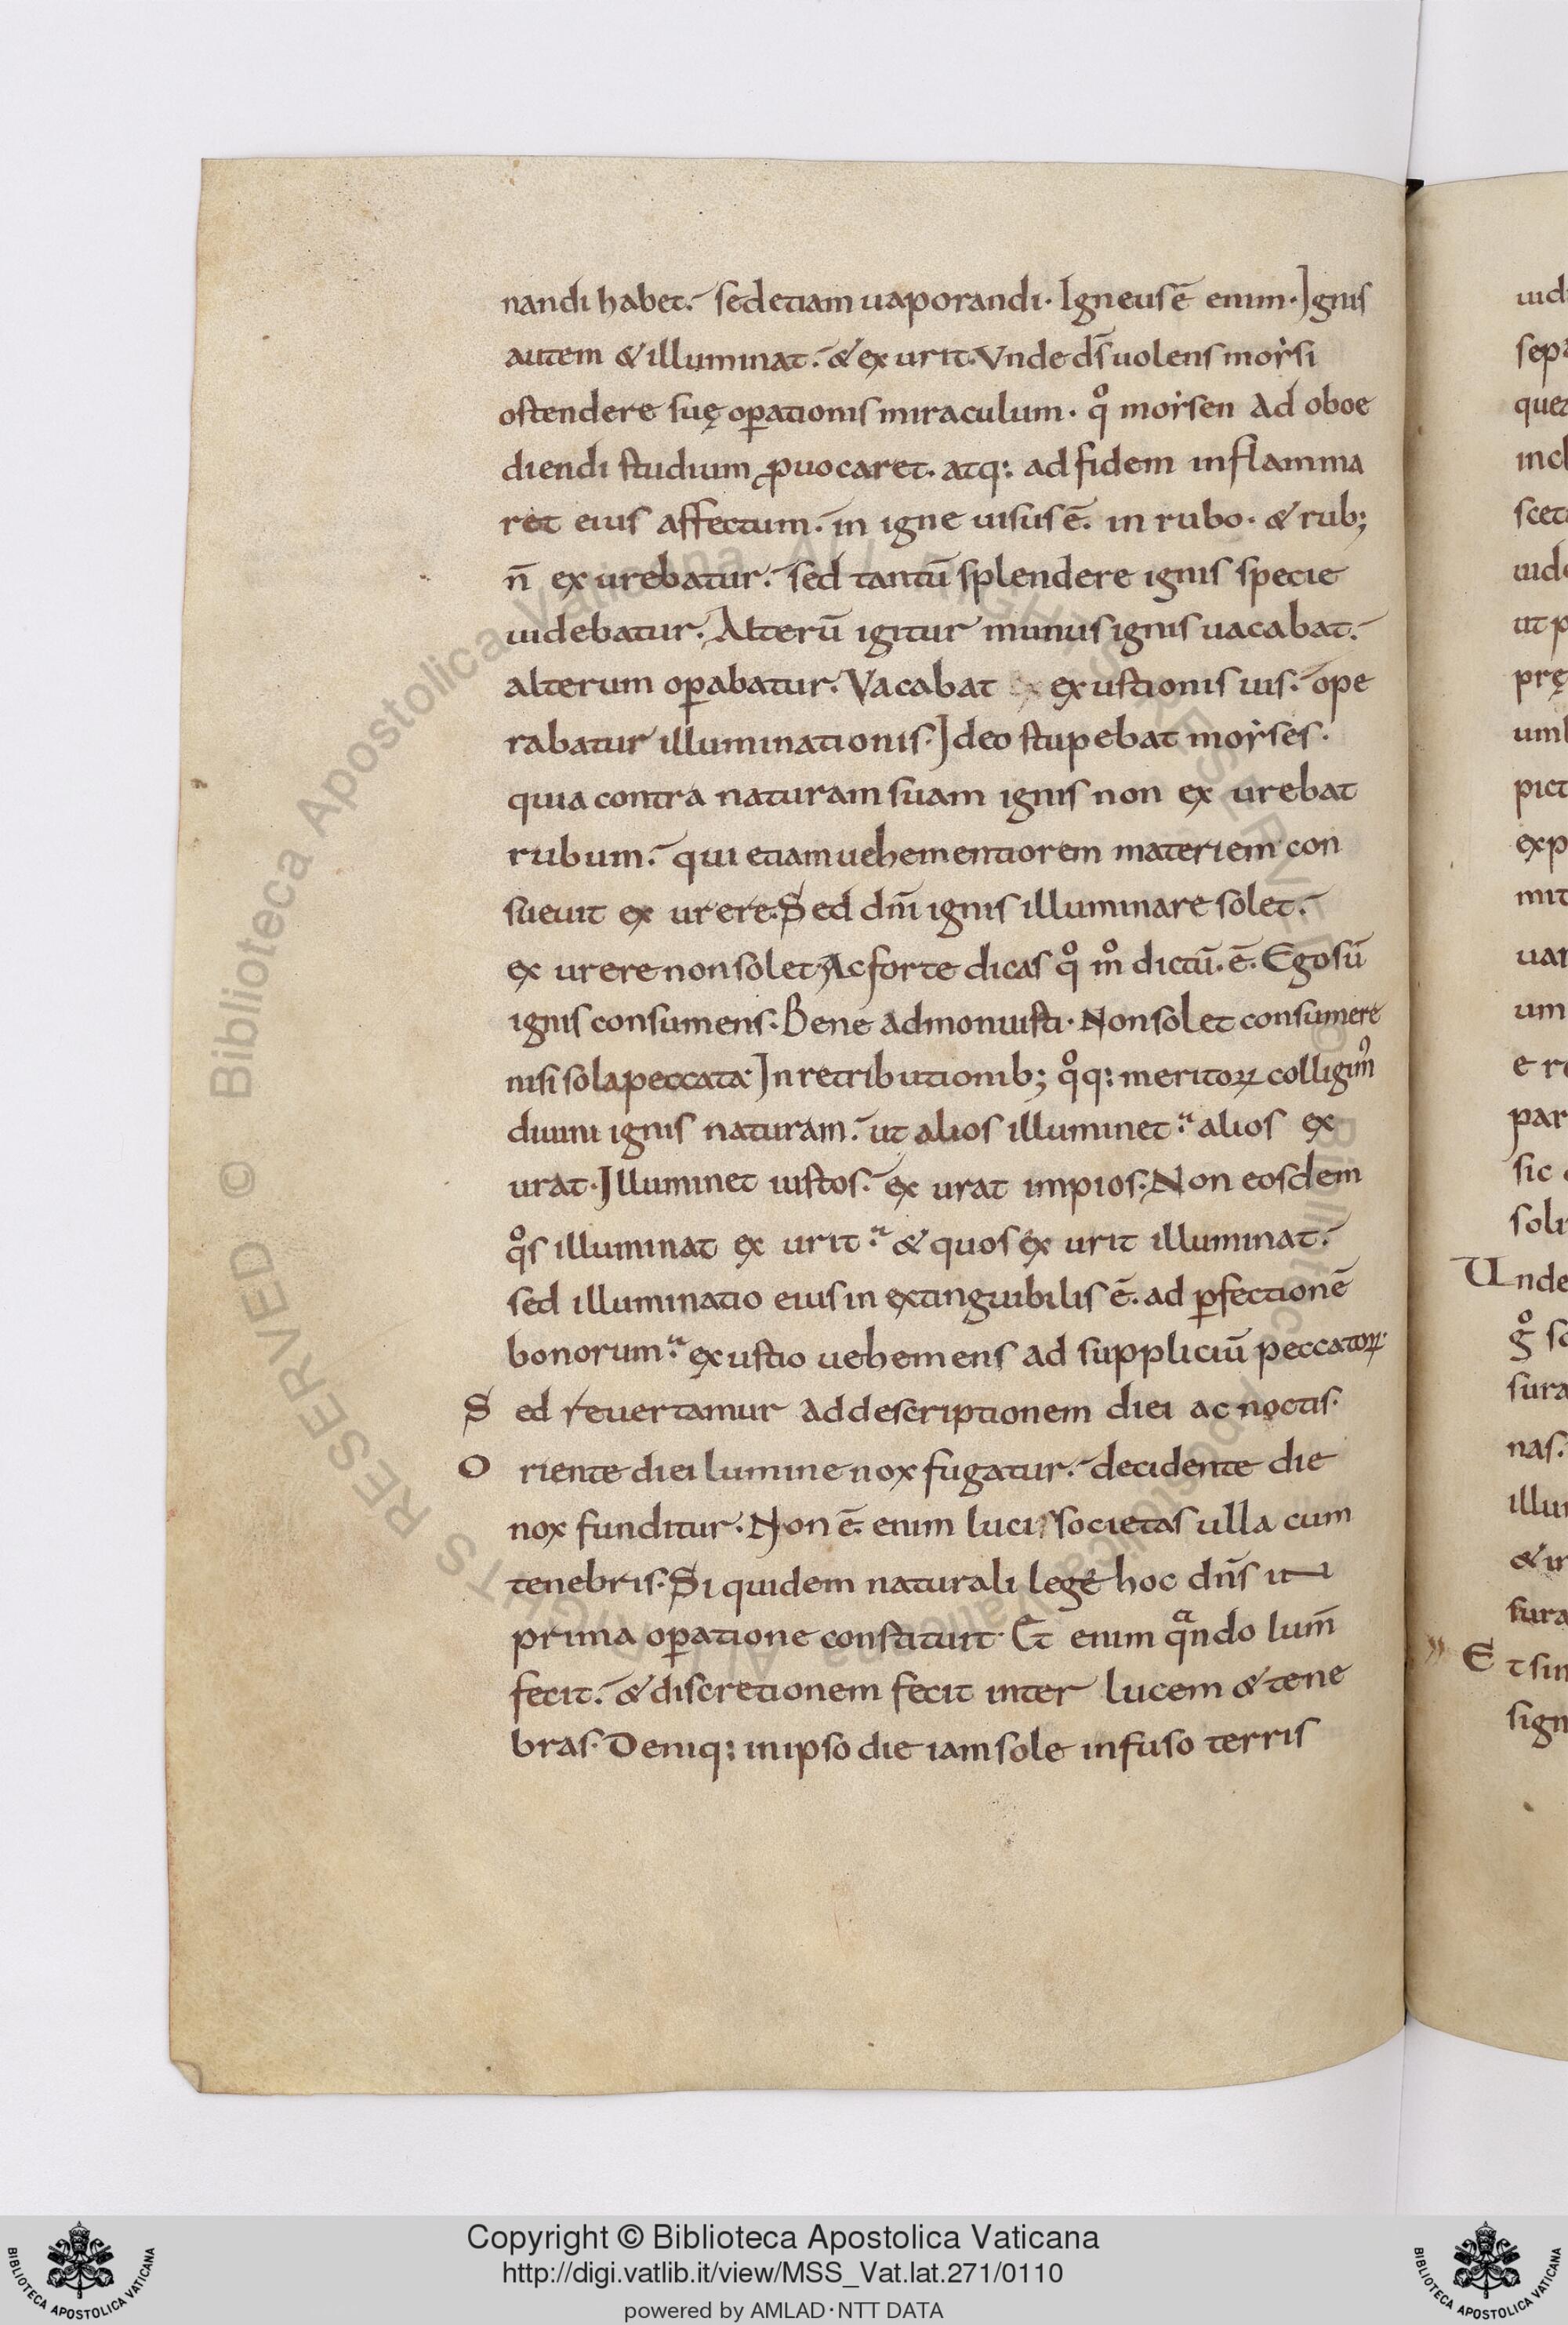 nandi habet. sed etiam uaporandi. Igneus ē enim. Ignis
autem & illuminat. & ex urit. Vnde ds̄ uolens moẏsi
ostendere suę oꝑationis miraculum. qͦ moẏsen ad oboe
diendi studium ꝓuocaret. atq: ad fidem inflamma
ret eius affectum. in igne uisus ē. in rubo. & rub;
n̄ ex urebatur. sed tantū splendere ignis specie
uidebatur. Alterū igitur munus ignis uacabat.
alterum oꝑabatur. Vacabat ex exustionis uis. ope
rabatur illuminationis. Ideo stupebat moẏses.
quia contra naturam suam ignis non ex urebat
rubum. qui etiam uehementiorem materiem con
sueuit ex urere. Sed dn̄i ignis illuminare solet.
ex urere non solet; Ac forte dicas qͦ mͦ dictū. ē. Ego sū
ignis consumens. Bene admonuisti. Non solet consumere
nisi sola peccata. In retributionib; qͦq: meritoꝝ colligim᾽
diuini ignis naturam. ut alios illuminet. alios ex
urat. Illuminet iustos. ex urat impios. Non eosdem
qͦs illuminat ex urit. & quos ex urit illuminat.
sed illuminatio eius in extinguibilis ē. ad ꝑfectionē
bonorum. exustio uehemens ad suppliciū peccatoꝝ.
S ed reuertamur ad descriptionem diei ac noctis.
O riente diei lumine nox fugatur. decidente die
nox funditur. Non ē. enim luci societas ulla cum
tenebris. Si quidem naturali lege hoc dn̄s in
prima oꝑatione constituit. Et enim qͣndo lum̄
fecit. & discretionem fecit inter lucem & tene
bras. Deniq: in ipso die iam sole infuso terris
uid
sepa
que
incl
scet
uid
ut p
prę
umb
pict
exp
mit
uar
um
e r
par
sic
soli
Unde
gͦ s
sura
nas.
illu
& in
sura
» E t sin
sign
© Biblioteca Apostolica Vaticana ALL RIGHTS RESERVED
© Biblioteca Apostolica Vaticana ALL RIGHTS RESERVED
Copyright © Biblioteca Apostolica Vaticana
http://digi.vatlib.it/view/MSS_Vat.lat.271/0110
powered by AMLAD·NTT DATA
BIBLIOTECA APOSTOLICA VATICANA
BIBLIOTECA APOSTOLICA VATICANA